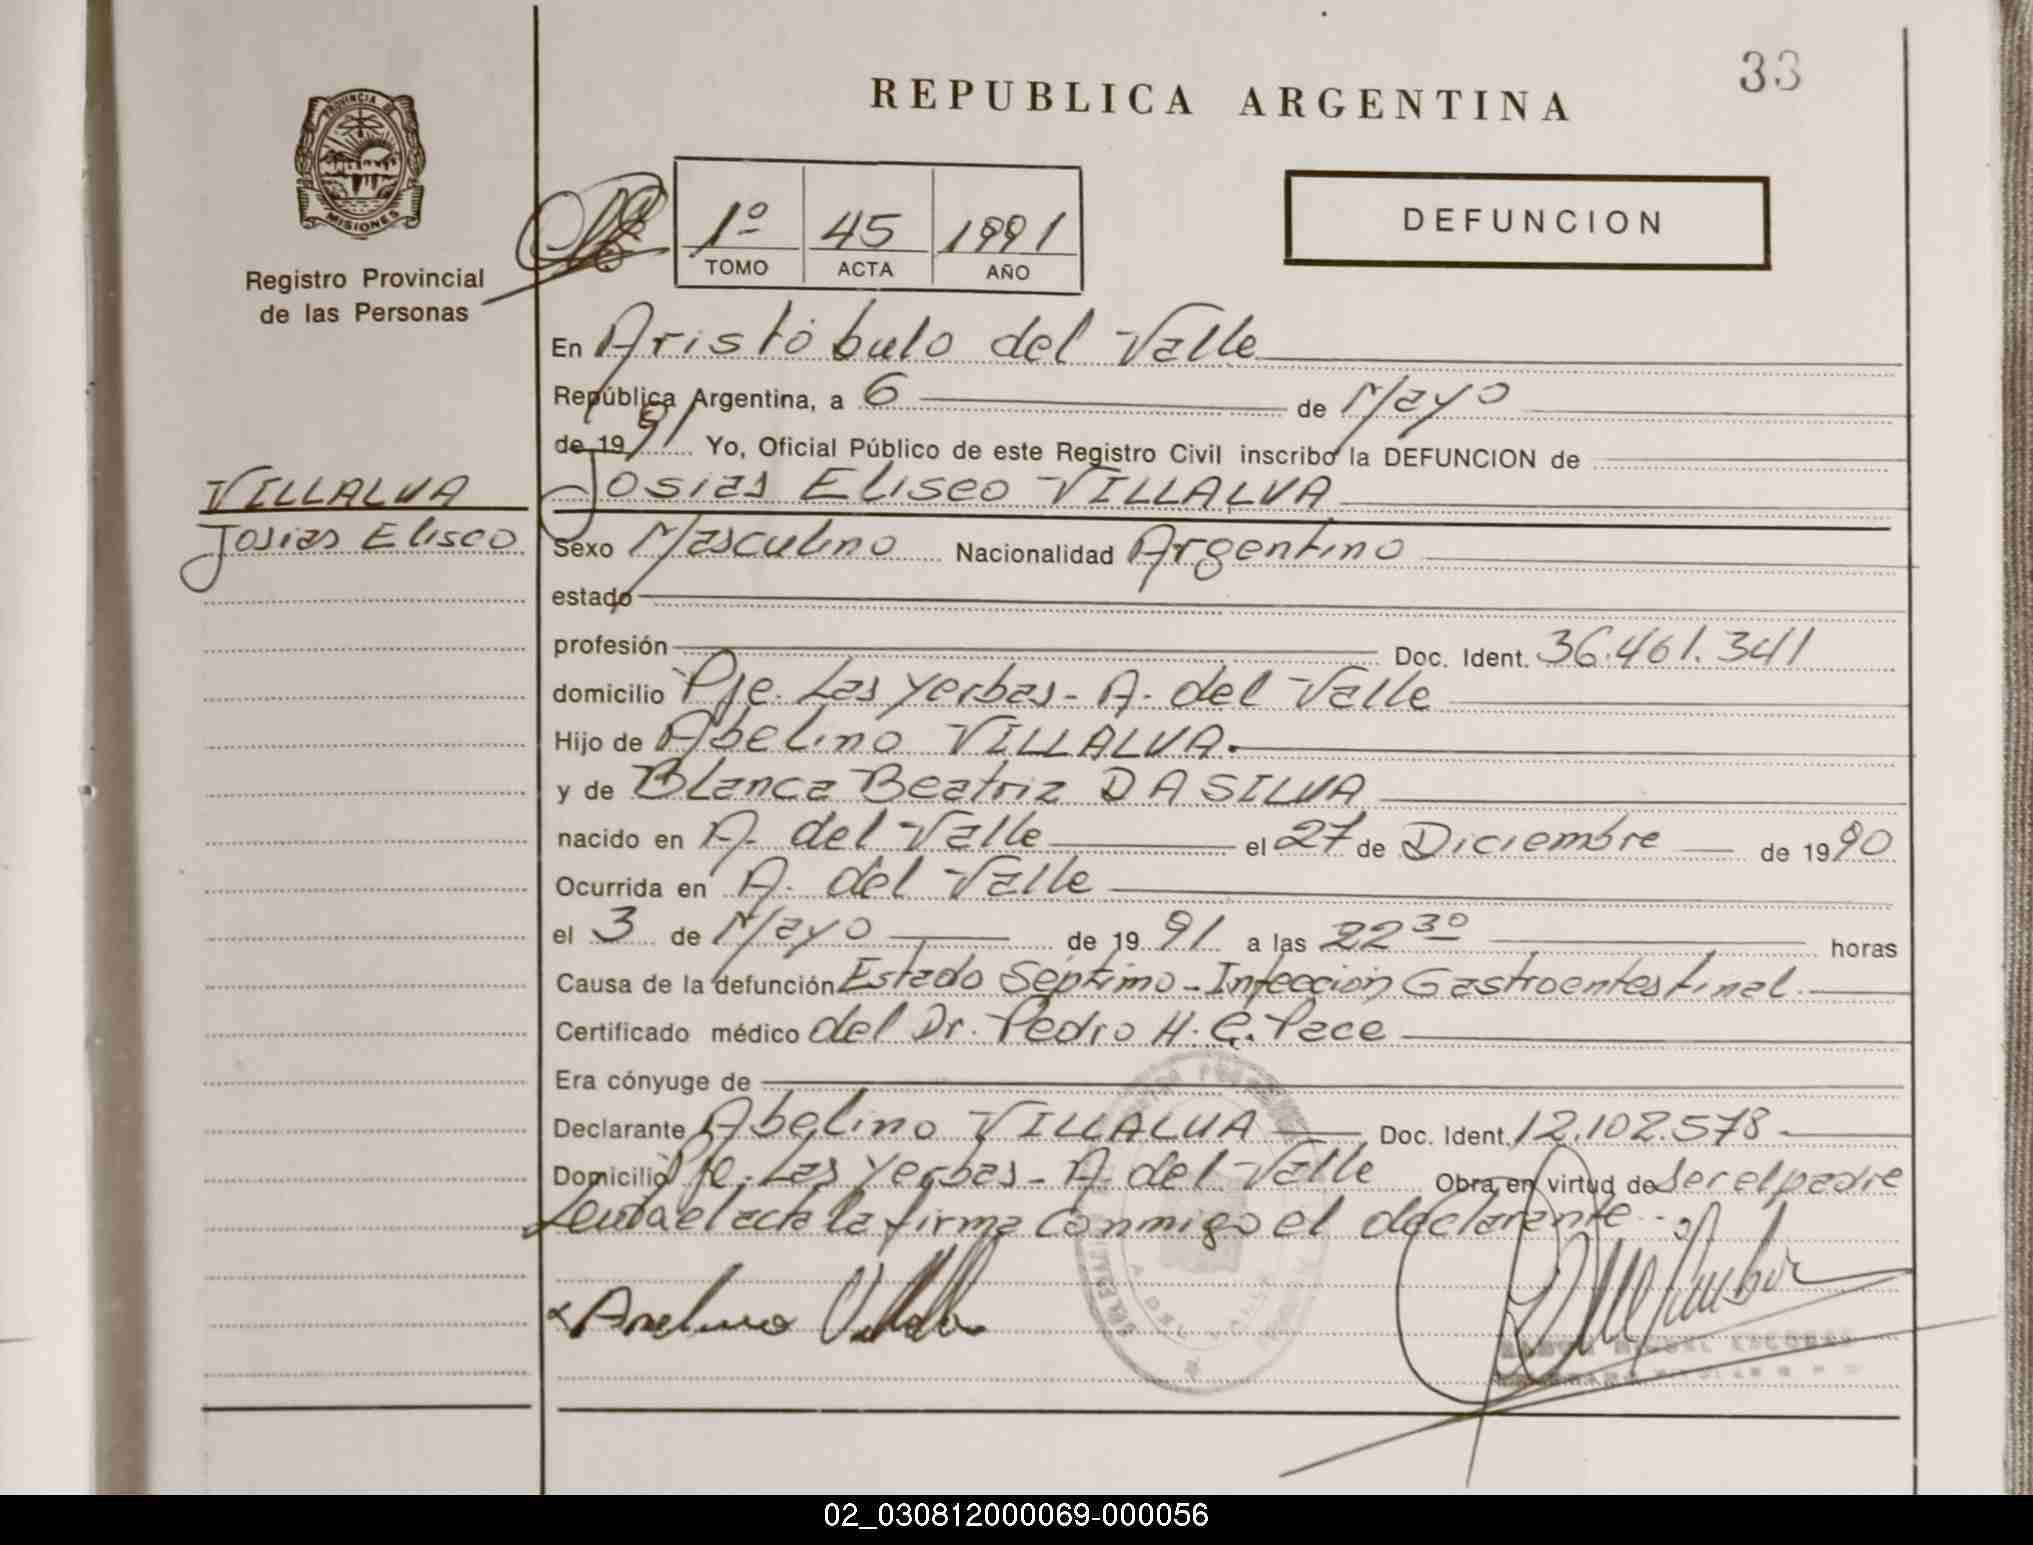 33
REPUBLICA ARGENTINA
PROVINCIA DE
MISIONES
Registro Provincial
de las Personas
1º 45 1991
TOMO ACTA AÑO
DEFUNCION
En Aristóbulo del Valle
República Argentina, a 6 de Mayo
de 1991 Yo, Oficial Público de este Registro Civil inscribo la DEFUNCION de
VILLALVA
Josias Eliseo VILLALVA
Josias Eliseo
Sexo Masculino Nacionalidad Argentino
estado
profesión Doc. Ident. 36.461.341
domicilio Pje. Las Yerbas - A. del Valle
Hijo de Abelino VILLALVA.
y de Blanca Beatriz DA SILVA
nacido en A. del Valle el 27 de Diciembre de 1990
Ocurrida en A. del Valle
el 3 de Mayo de 1991 a las 22 30 horas
Causa de la defunción Estado Séptimo - Infección Gastroentestinal.
Certificado médico del Dr. Pedro H. G. Pace
Era cónyuge de
Declarante Abelino VILLALVA Doc. Ident. 12.102.578
Domicilio Pje. Las Yerbas - A. del Valle Obra en virtud de ser el padre
Leida el acta la firma conmigo el declarante.
A. DEL VALLE
MIGUEL ESCOBAR
02_030812000069-000056